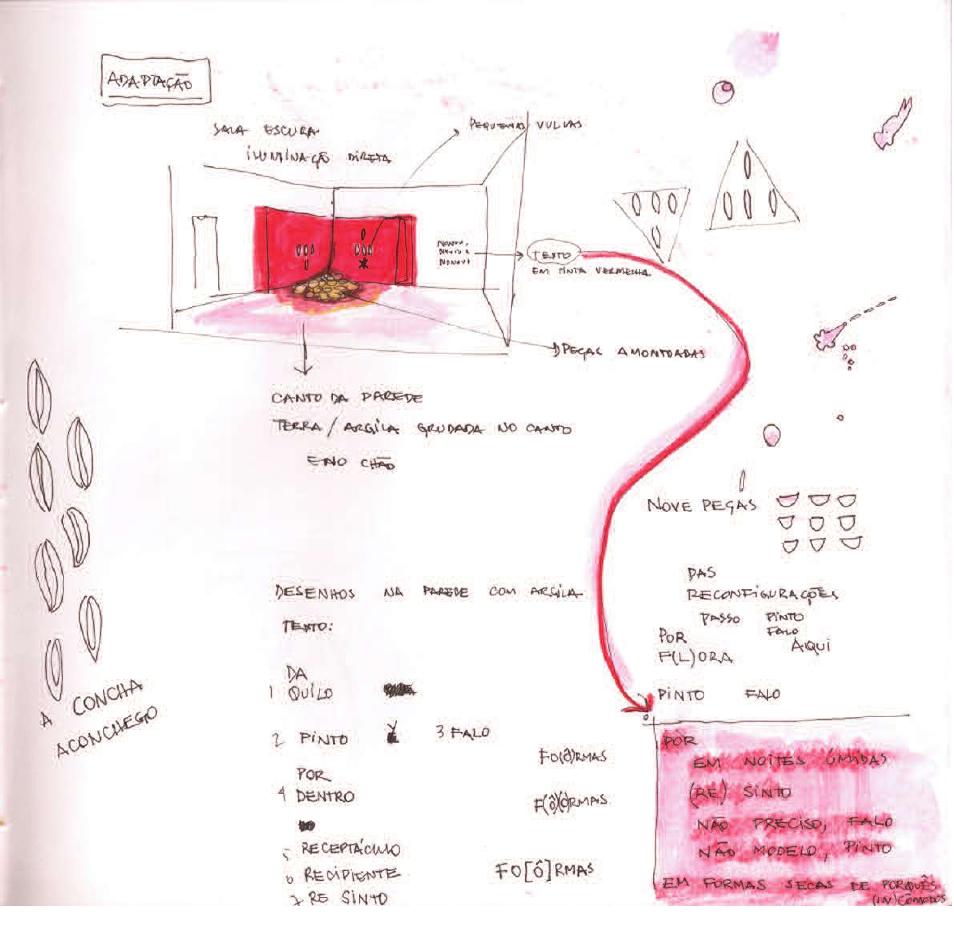 ADAPTAÇÃO
SALA ESCURA
ILUMINAÇÃO DIRETA
PEQUENAS VULVAS
TEXTO
EM TINTA VERMELHA
PEÇAS AMONTOADAS
CANTO DA PAREDE
TERRA / ARGILA GRUDADA NO CANTO
E NO CHÃO
NOVE PEÇAS
DAS
RECONFIGURAÇÕES
PASSO PINTO
FALO
AQUI
POR
F(L)ORA
PINTO FALO
DESENHOS NA PAREDE COM ARGILA
TEXTO:
DA
1 QUILO
2 PINTO
3 FALO
POR
4 DENTRO
5 RECEPTÁCULO
6 RECIPIENTE
7 RE SINTO
FO(Ô)RMAS
F(Ô)(Ó)RMAS
FO[Ô]RMAS
A CONCHA
ACONCHEGO
POR
EM NOITES ÚMIDAS
(RE) SINTO
NÃO PRECISO, FALO
NÃO MODELO, PINTO
EM FORMAS SECAS DE PORQUÊS
(IN)CÔMODOS